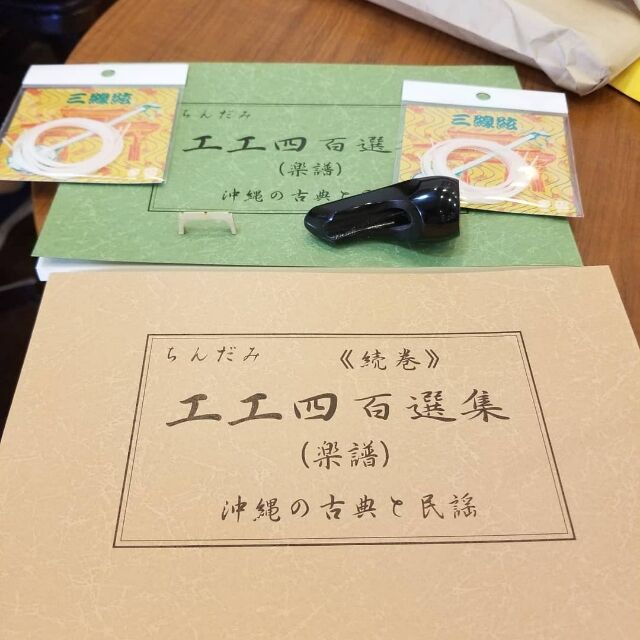 三線絃
三線絃
ちんだみ
工工四百選
(楽譜)
沖縄の古典と民
ちんだみ 《続巻》
工工四百選集
(楽譜)
沖縄の古典と民謡